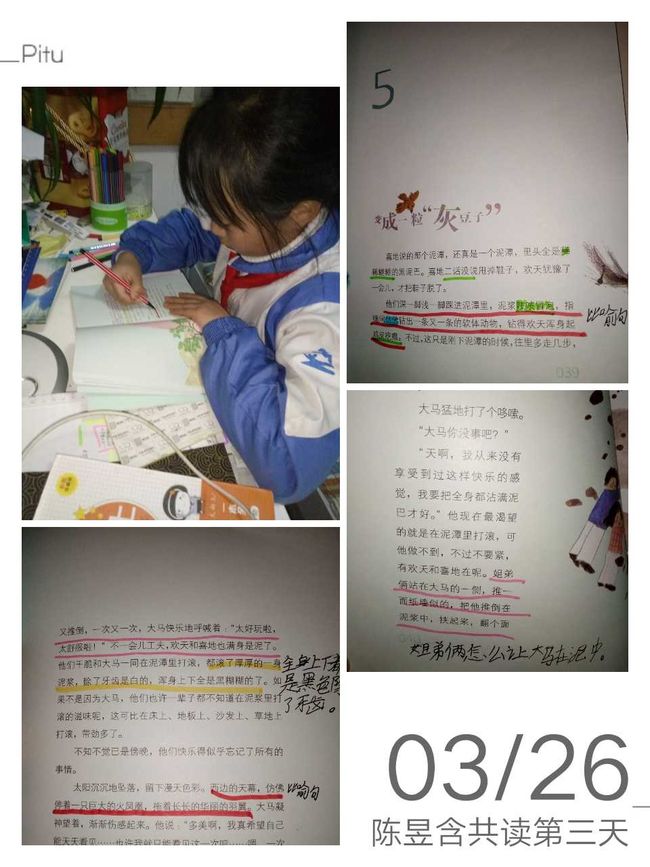 Pitu
5
变成一粒“灰豆子”
喜地说的那个泥潭，还真是一个泥潭，里头全是
糊糊的黑泥巴。喜地二话没说甩掉鞋子，欢天犹豫了
一会儿，才把鞋子脱了。
他们深一脚浅一脚踩进泥潭里，泥浆
钻出一条又一条的软体动物，钻得欢天浑身起
不过，这只是刚下泥潭的时候，往里多走几步，
比喻句
039
大马猛地打了个哆嗦。
“大马你没事吧？”
“天啊，我从来没有
享受到过这样快乐的感
觉，我要把全身都沾满泥
巴才好。”他现在最渴望
的就是在泥潭里打滚，可
他做不到，不过不要紧，
有欢天和喜地在呢。姐弟
俩站在大马的一侧，推一
面纸墙似的，把他推倒在
泥浆中，扶起来，翻个面
姐弟俩怎么让大马在泥中。
又推倒，一次又一次，大马快乐地呼喊着：“太好玩啦，
太舒服啦！”不一会儿工夫，欢天和喜地也满身是泥了。
他们干脆和大马一同在泥潭里打滚，都滚了厚厚的一身
泥浆，除了牙齿是白的，浑身上下全是黑糊糊的了。如
果不是因为大马，他们也许一辈子都不知道在泥浆里打
滚的滋味呢，这可比在床上、地板上、沙发上、草地上
打滚，带劲多了。
全身上下都
是黑色除
了牙齿。
不知不觉已是傍晚，他们快乐得似乎忘记了所有的
事情。
太阳沉沉地坠落，留下漫天色彩。西边的天幕，仿佛
停着一只巨大的火凤凰，拖着长长的华丽的羽翼。大马凝
比喻句
神望着，渐渐伤感起来。他说：“多美啊，我真希望自己
能天天看见……也许我就只能看见这一次吧……嗯，一次
03/26
陈昱含共读第三天